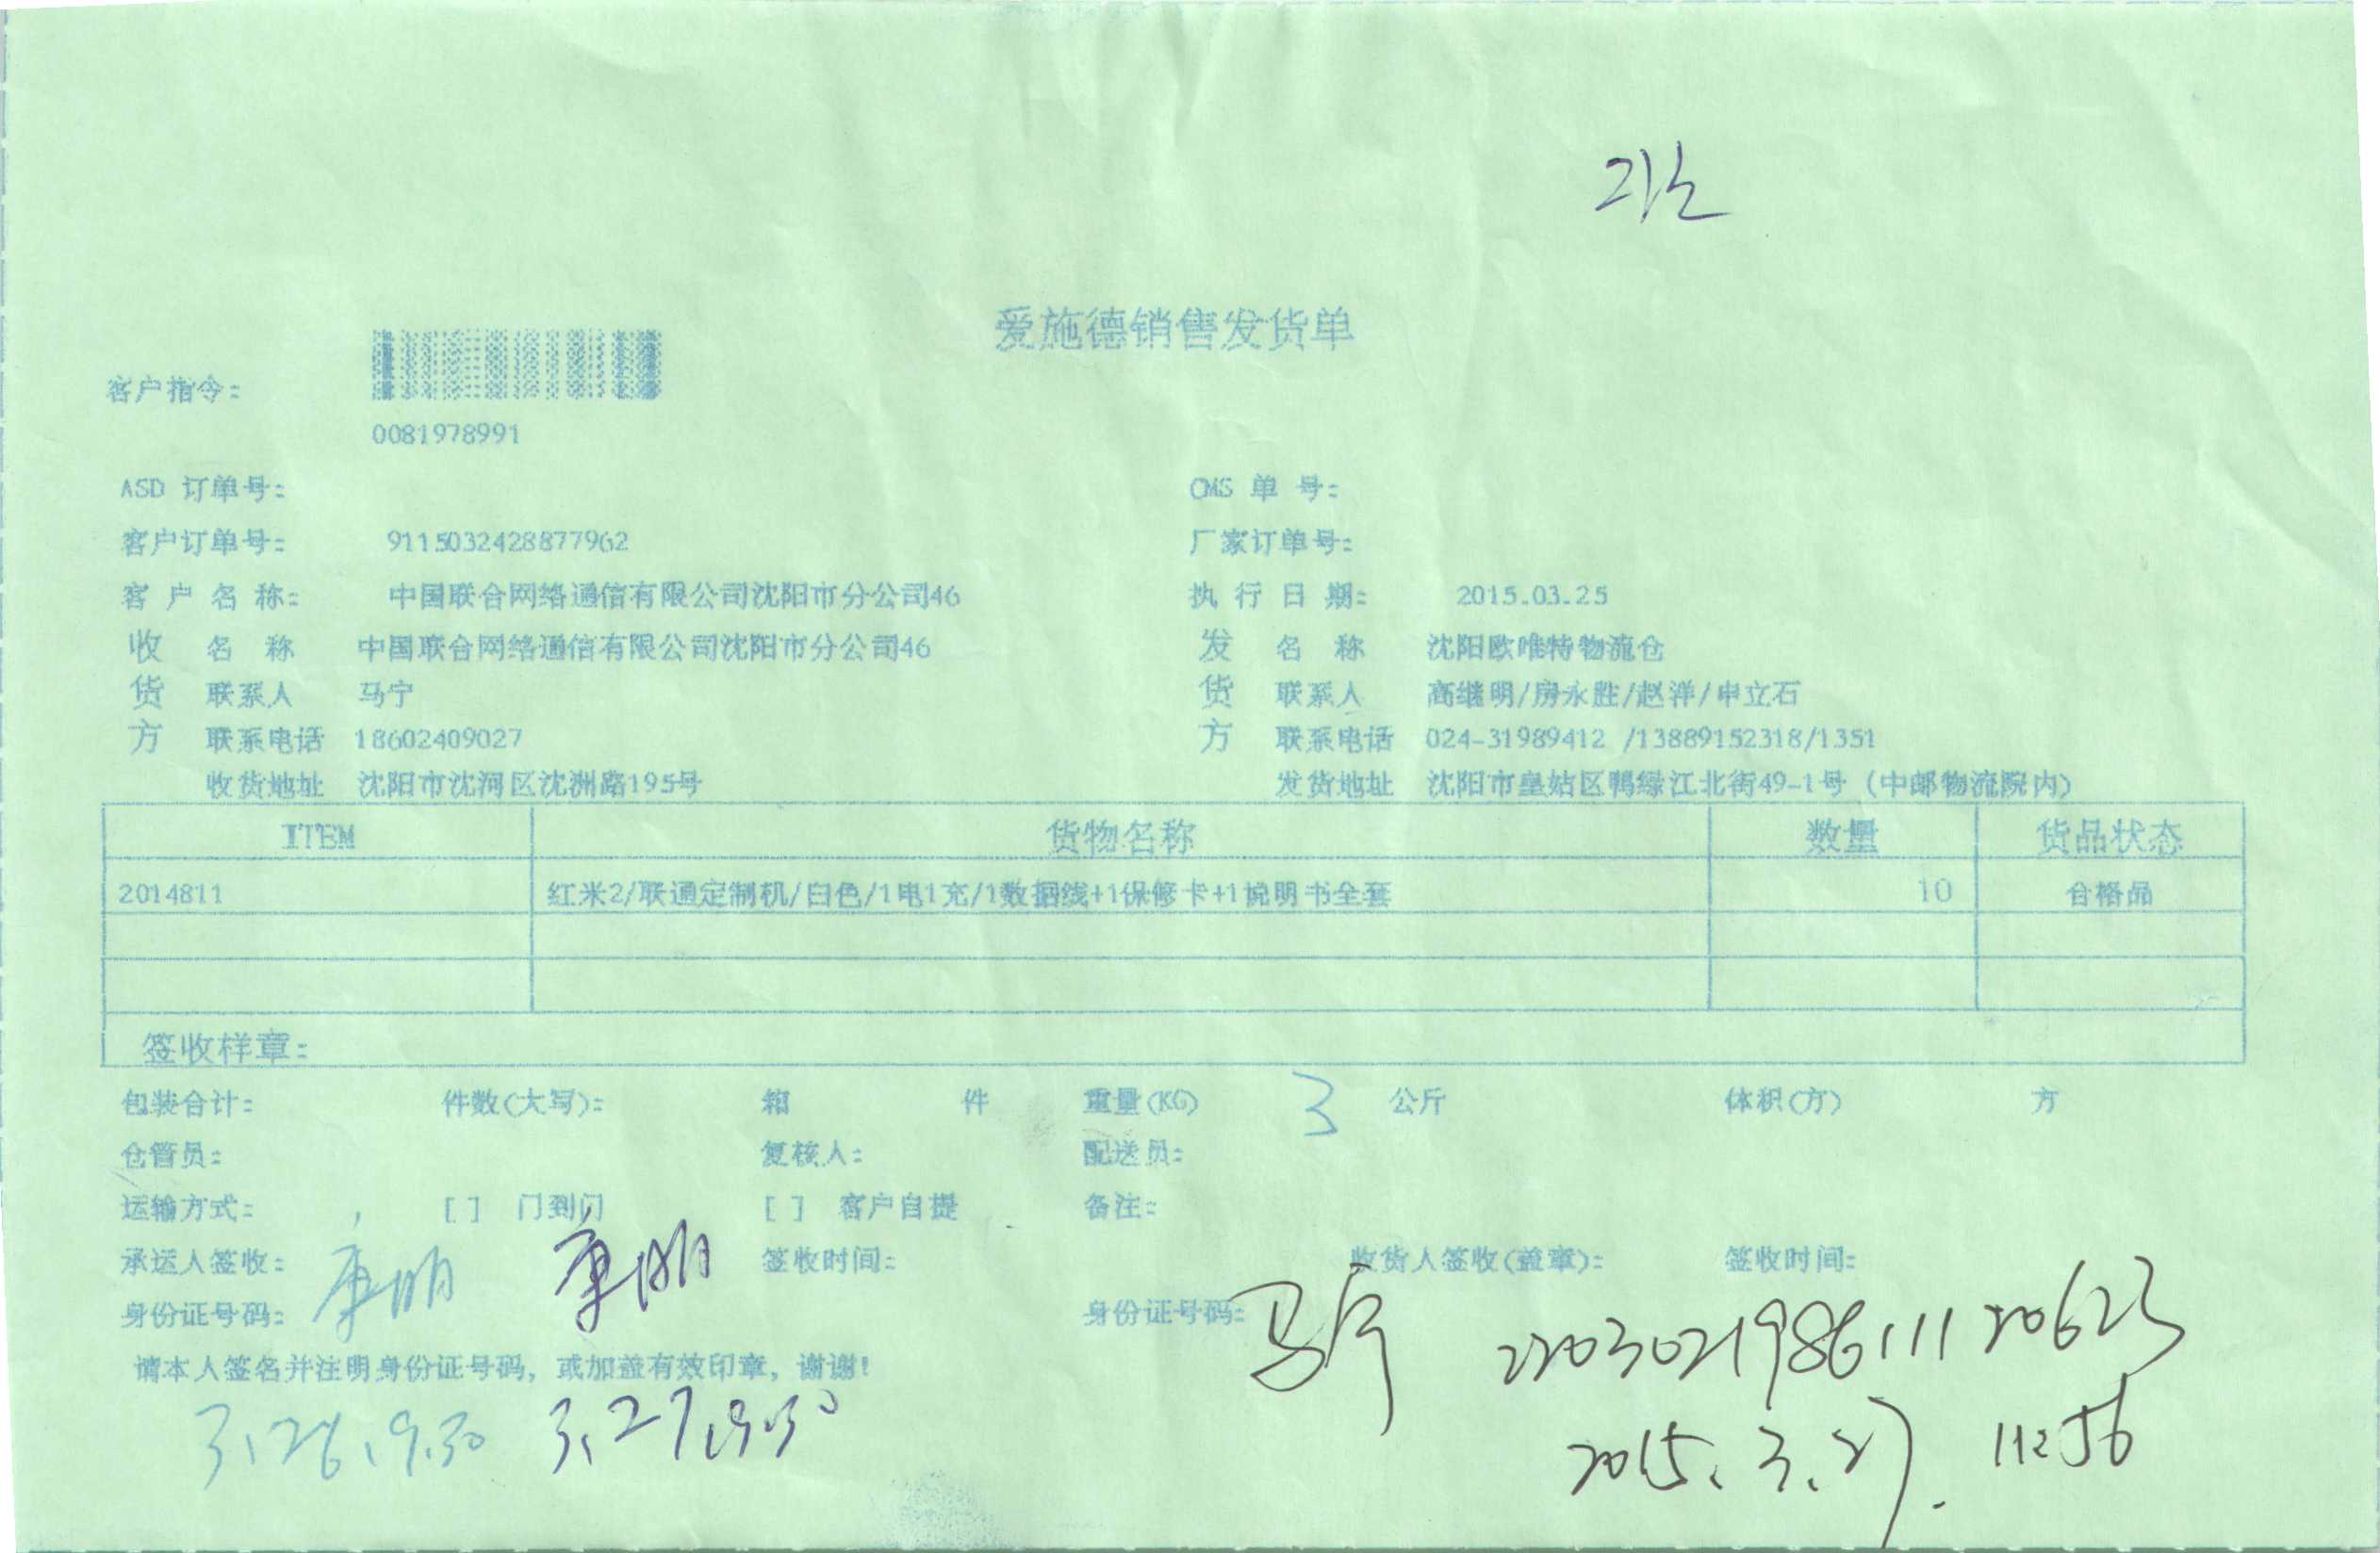 爱施德销售发货单
客户指令:
0081978991
ASD 订单号: OMS 单 号:
客户订单号: 9115032428877962 厂家订单号:
客 户 名 称: 中国联合网络通信有限公司沈阳市分公司46 执 行 日 期: 2015.03.25
收 名 称 中国联合网络通信有限公司沈阳市分公司46 发 名 称 沈阳欧唯特物流仓
货 联系人 马宁 货 联系人 高继明/房永胜/赵洋/申立石
方 联系电话 18602409027 方 联系电话 024-31989412 /13889152318/1351
收货地址 沈阳市沈河区沈洲路195号 发货地址 沈阳市皇姑区鸭绿江北街49-1号（中邮物流院内）
ITEM 货物名称 数量 货品状态
2014811 红米2/联通定制机/白色/1电1充/1数据线+1保修卡+1说明书全套 10 合格品
签收样章:
包装合计: 件数(大写): 箱 件 重量(KG) 3 公斤 体积(方) 方
仓管员: 复核人: 配送员:
运输方式: [ ] 门到门 [ ] 客户自提 备注:
承运人签收: 康明 康明 签收时间: 收货人签收(盖章): 签收时间:
身份证号码: 身份证号码: 马宁
请本人签名并注明身份证号码，或加盖有效印章，谢谢!
3.26.9.30 3.27.9.30 2015.3.27. 11:56